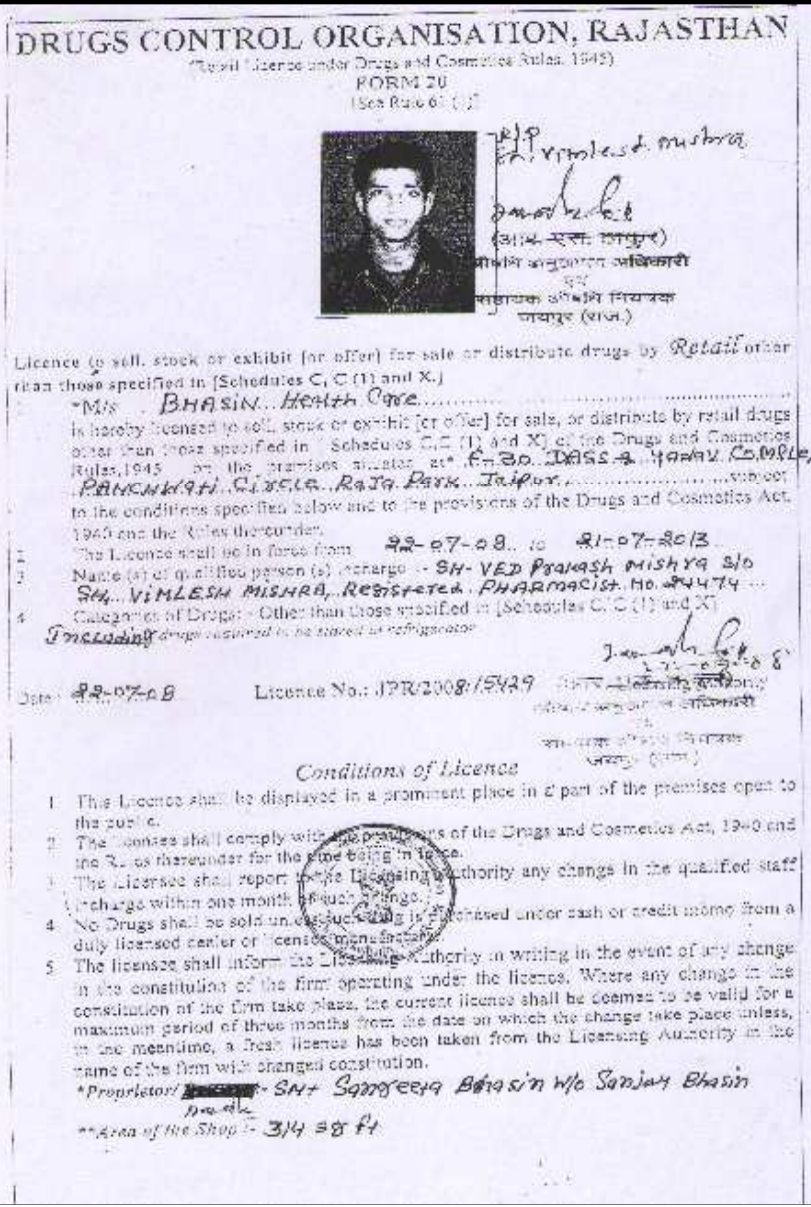 DRUGS CONTROL ORGANISATION, RAJASTHAN
(Retail Licence under Drugs and Cosmetics Rules, 1945)
FORM 20
[See Rule 61 (1)]
R/P
vimlesh mishra
(आर. एस. ठाकुर)
अधिकारी
एवं
सहायक औषधि नियंत्रक
जयपुर (राज.)
Licence to sell, stock or exhibit [or offer] for sale or distribute drugs by Retail other
than those specified in [Schedules C, C (1) and X.]
*M/s BHASIN Health Care
is hereby licensed to sell, stock or exhibit [or offer] for sale, or distribute by retail drugs
other than those specified in [Schedules C,C (1) and X] of the Drugs and Cosmetics
Rules,1945 on the premises situated at* F-30 DASS & YADAV COMPLE,
PANCHWATI Circle RAJA Park Jaipur subject
to the conditions specified below and to the provisions of the Drugs and Cosmetics Act,
1940 and the Rules thereunder.
2 The Licence shall be in force from 22-07-08 to 21-07-2013
3 Name (s) of qualified person (s) incharge :- SH- VED PRAKASH MISHRA S/O
SH. VIMLESH MISHRA, Registered PHARMACIST NO. 24474
4 Categories of Drugs:- Other than those specified in [Schedules C, C (1) and X]
Including drugs required to be stored in refrigerator
Date : 22-07-08 Licence No.: JPR/2008/15429
सहायक औषधि नियंत्रक
जयपुर (राज.)
Conditions of Licence
1 This Licence shall be displayed in a prominent place in a part of the premises open to
the public.
2 The licensee shall comply with the provisions of the Drugs and Cosmetics Act, 1940 and
the Rules thereunder for the time being in force.
3 The Licensee shall report to the Licensing Authority any change in the qualified staff
incharge within one month of such change.
4 No Drugs shall be sold unless such drug is purchased under cash or credit memo from a
duly licensed dealer or licensed manufacturer.
5 The licensee shall inform the Licensing Authority in writing in the event of any change
in the constitution of the firm operating under the licence. Where any change in the
constitution of the firm take place, the current licence shall be deemed to be valid for a
maximum period of three months from the date on which the change take place unless,
in the meantime, a fresh licence has been taken from the Licensing Authority in the
name of the firm with changed constitution.
*Proprietor/ :- SMt Sangeeta Bhasin W/o Sanjay Bhasin
**Area of the Shop :- 314 sq ft